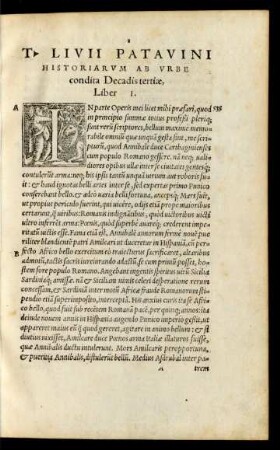 T. LIVII PATAVINI
HISTORIARVM AB VRBE
condita Decadis tertiæ,
Liber I.
A
IN parte Operis mei licet mihi præfari, quod
in principio summæ totius professi pleriq;
sunt rerũ scriptores, bellum maxime memo
rabile omniũ quæ unquã gesta sint, me scri
pturũ, quod Annibale duce Carthaginienses
cum populo Romano gessere. nã neq; uali
diores opibus ullæ inter se ciuitates gentesq;
contulerũt arma: neq; his ipsis tantum unquã uirium aut roboris
fuit: & haud ignotas belli artes inter se, sed expertas primo Punico
conserebant bello. & adeo uaria belli fortuna, ancepsq; Mars fuit,
ut propius periculo fuerint, qui uicere. odijs etiã prope maioribus
certarunt, quã uiribus: Romanis indignantibus, quod uictoribus uicti
ultro inferrent arma: Pœnis, quod superbe auareq; crederent imperi
tatum uictis esse. Fama etiã est, Annibalẽ annorum fermè nouẽ pue
riliter blandientẽ patri Amilcari ut duceretur in Hispaniã, cũ perfe
cto Africo bello exercitum eò traiecturus sacrificaret, altaribus ad
motũ, tactis sacris iureiurando adactũ, se cum primũ posset, ho
stem fore populo Romano. Angebant ingentis spiritus uirũ Sicilia
Sardiniaq; amissæ. nã & Siciliam nimis celeri desperatione rerum
concessam, & Sardiniã inter motũ Africæ fraude Romanorum sti
pendio etiã superimposito, interceptã. His anxius curis ita se Africo
bello, quod fuit sub recentem Romanã pacẽ, per quinq; annos: ita
deinde nouem annis in Hispania augendo Punico imperio gessit, ut
appareret maius eum quàm quod gereret, agitare in animo bellum: & si
diutius uixisset, Amilcare duce Pœnos arma Italiæ illaturos fuisse,
quæ Annibalis ductu intulerunt. Mors Amilcaris peropportuna,
& pueritia Annibalis, distulerũt bellũ. Medius Asdrubal inter pa-
A
trem